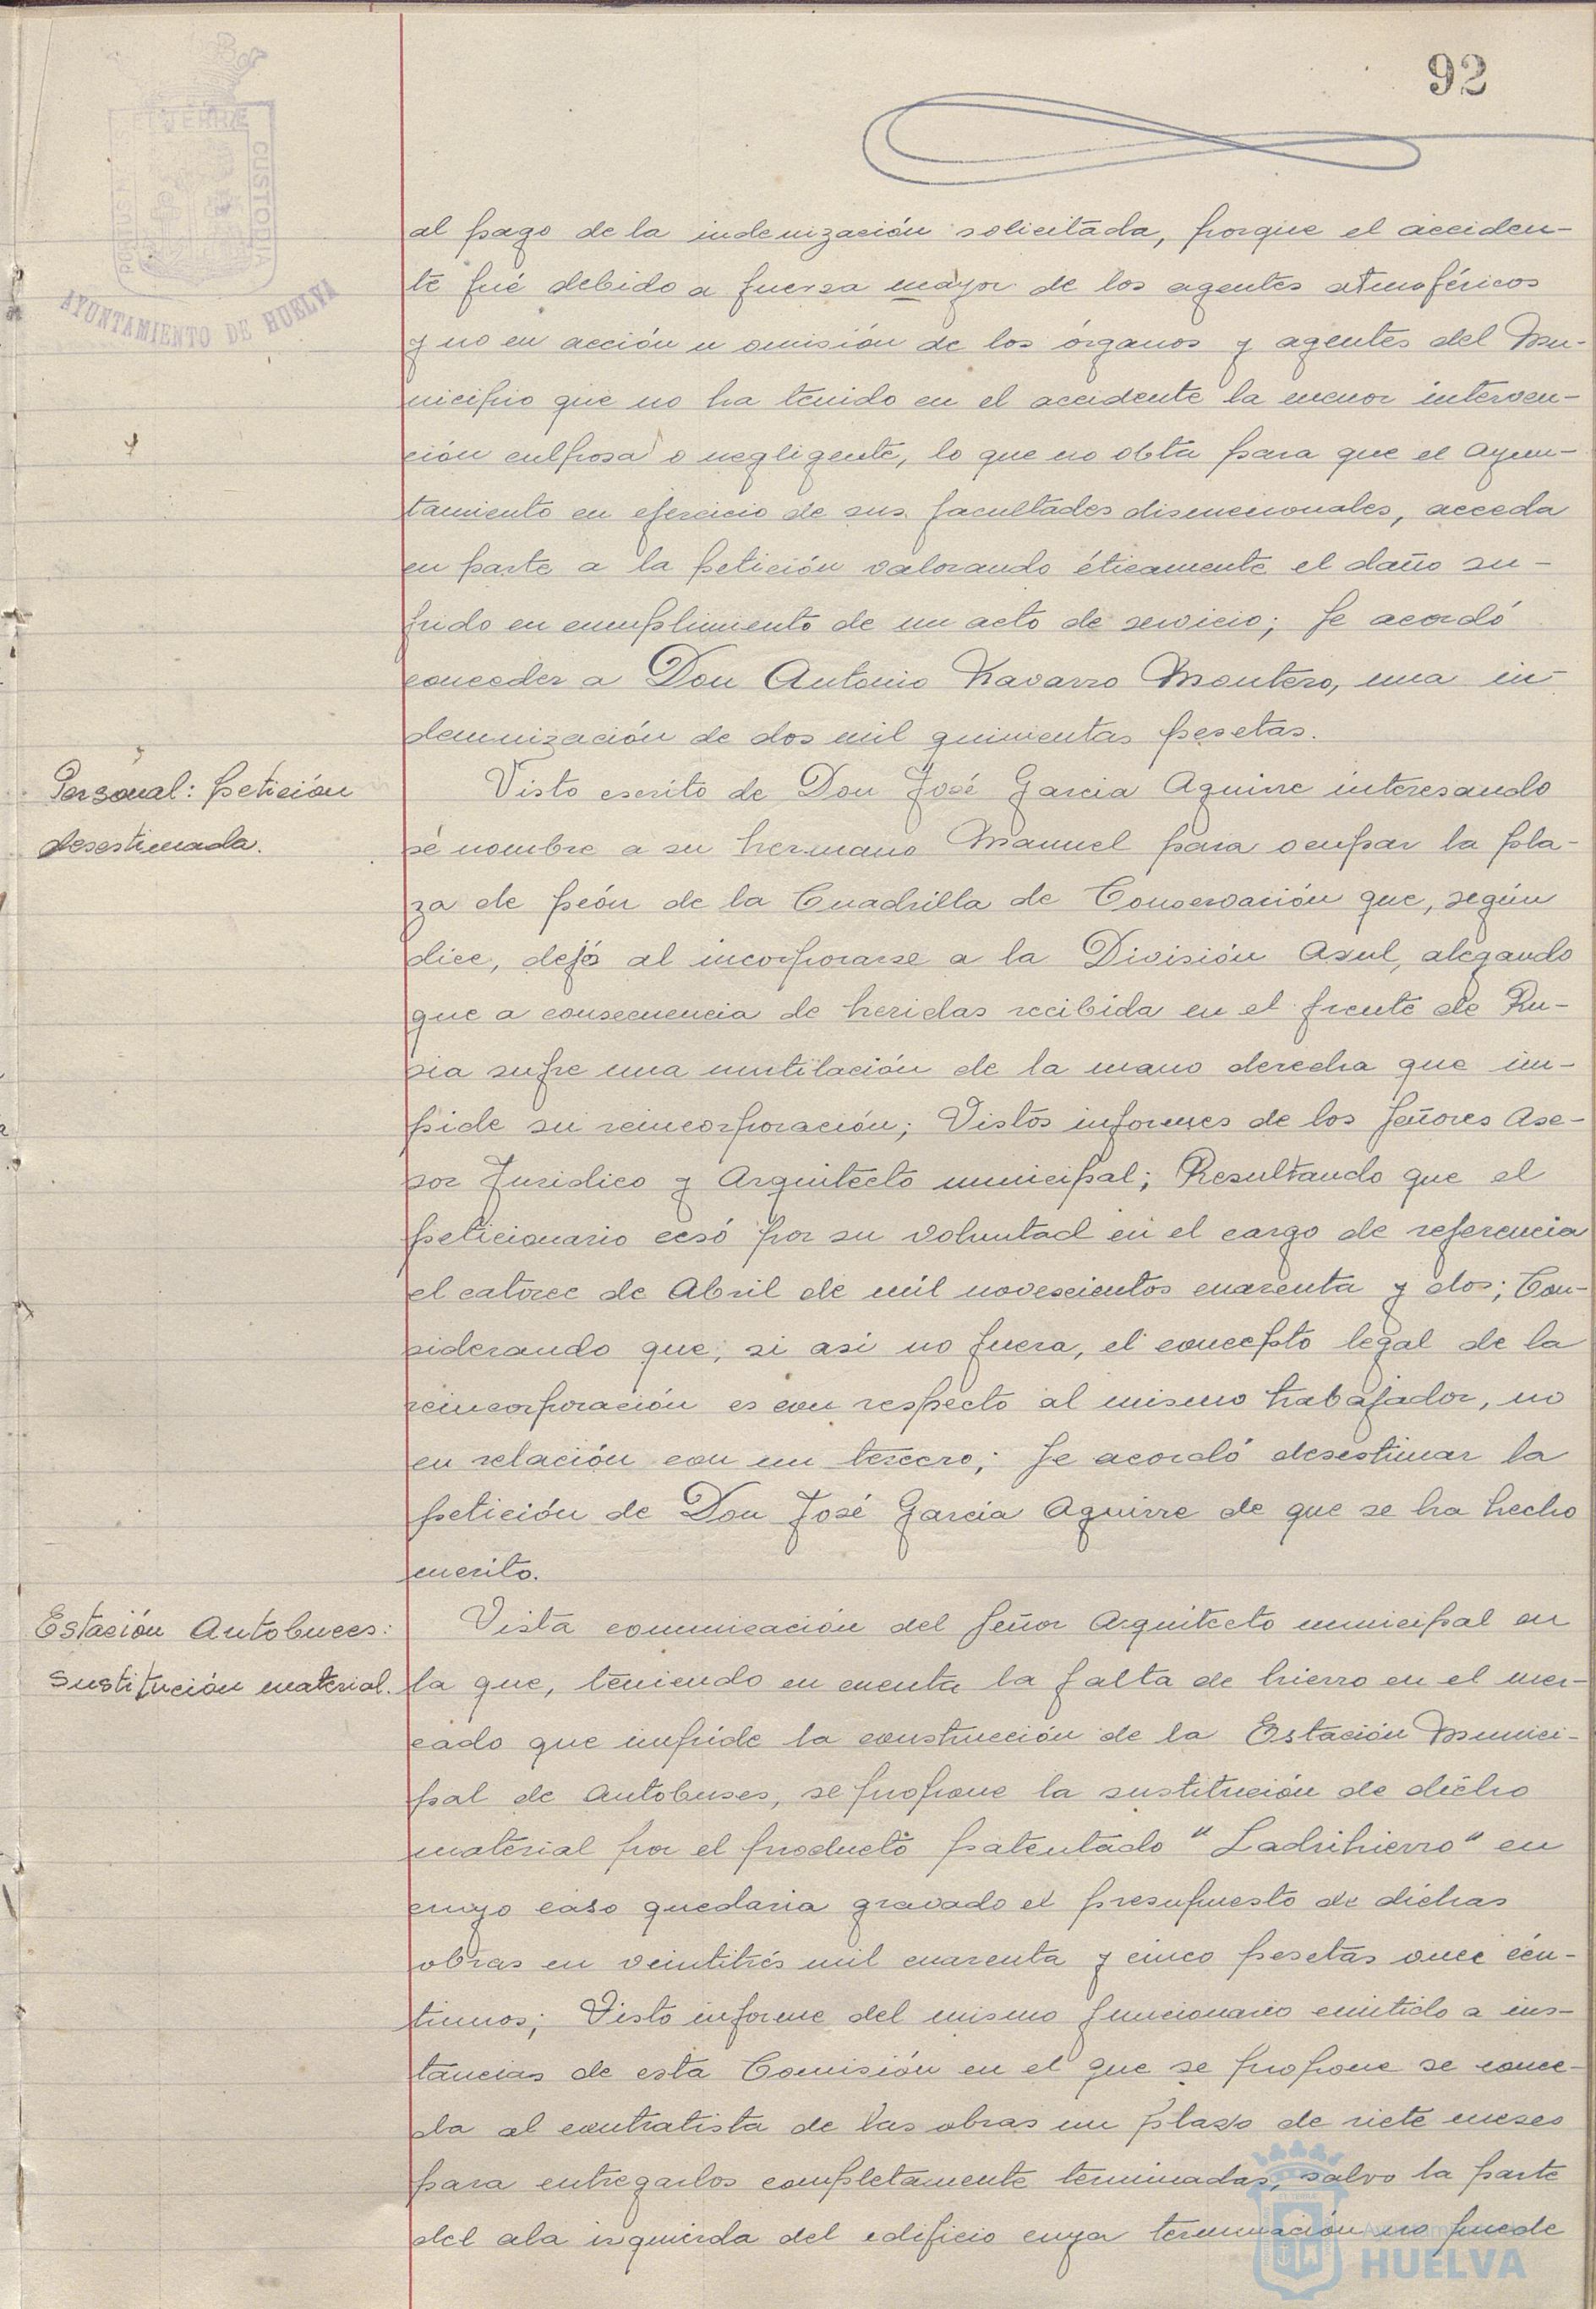 92
PORTUS MARIS ET TERRÆ CUSTODIA
AYUNTAMIENTO DE HUELVA
al pago de la indenización solicitada, porque el acciden-
te fué debido a fuersa mayor de los agentes atmoféricos
y no en acción u omisión de los órganos y agentes del Mu-
nicipio que no ha tenido en el accidente la menor interven-
ción culposa o negligente, lo que no obta para que el Ayun-
tamiento en ejercicio de sus facultades discrecionales, acceda
en parte a la petición valorando éticamente el daño su-
frido en cumplimiento de un acto de servicio; Se acordó
conceder a Don Antonio Navarro Montero, una in-
demnización de dos mil quinientas pesetas.
Personal: petición
desestimada.
Visto escrito de Don José Garcia Aguirre interesando
se nombre a su hermano Manuel para ocupar la pla-
za de peón de la Cuadrilla de Conservación que, según
dice, dejó al incorporarse a la División Asul, alegando
que a consecuencia de heridas recibida en el frente de Ru-
sia sufre una mutilación de la mano derecha que im-
pide su reincorporación; Vistos informes de los Señores Ase-
sor Juridico y Arquitecto municipal; Resultando que el
peticionario cesó por su voluntad en el cargo de referencia
el catorce de Abril de mil novescientos cuarenta y dos; Con-
siderando que, si asi no fuera, el concepto legal de la
reincorporación es con respecto al mismo trabajador, no
en relación con un tercero; Se acordó desestimar la
petición de Don José Garcia Aguirre de que se ha hecho
merito.
Estación Autobuces:
Sustitución material.
Vista comunicación del Señor Arquitecto municipal en
la que, teniendo en cuenta la falta de hierro en el mer-
cado que impide la construcción de la Estación Munici-
pal de Autobuses, se propone la sustitución de dicho
material por el producto patentado "Ladrihierro" en
cuyo caso quedaria gravado el presupuesto de dichas
obras en veintitrés mil cuarenta y cinco pesetas once cén-
timos; Visto informe del mismo funcionario emitido a ins-
tancias de esta Comisión en el que se propone se conce-
da al contratista de las obras un plaso de siete meses
para entregarlos completamente terminadas, salvo la parte
del ala isquierda del edificio cuya terminación no puede
HUELVA